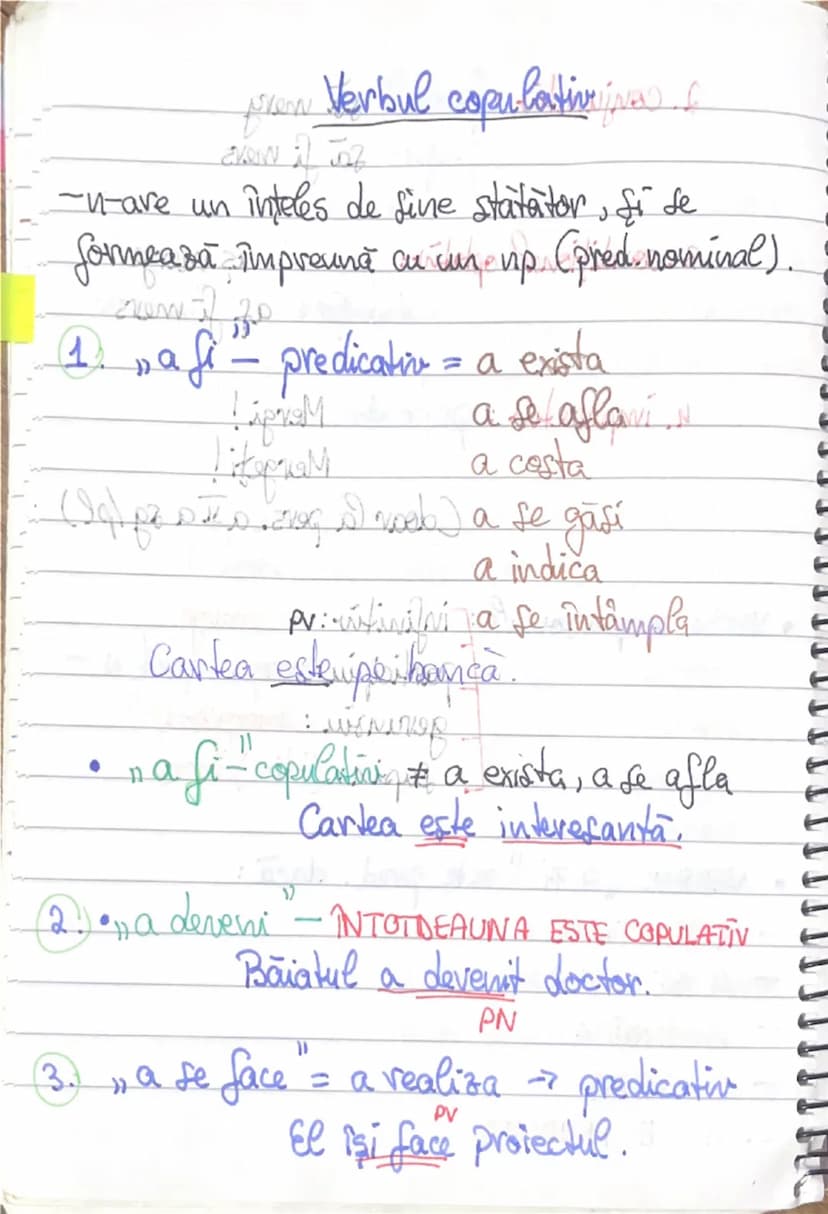 Verbul copulativ
-n-are un înțeles de sine stătător, și se
formează împreună cu un np (pred. nominal).
1. „a fi" - predicativ = a exista
a se afla
a costa
a se găsi
a indica
a se întâmpla
PV:
Cartea este pe bancă.
• „a fi" - copulativ ≠ a exista, a se afla
Cartea este interesantă.
2. • „a deveni" - ÎNTOTDEAUNA ESTE COPULATIV
Băiatul a devenit doctor.
PN
3. „a se face" = a realiza → predicativ
PV
El își face proiectul.